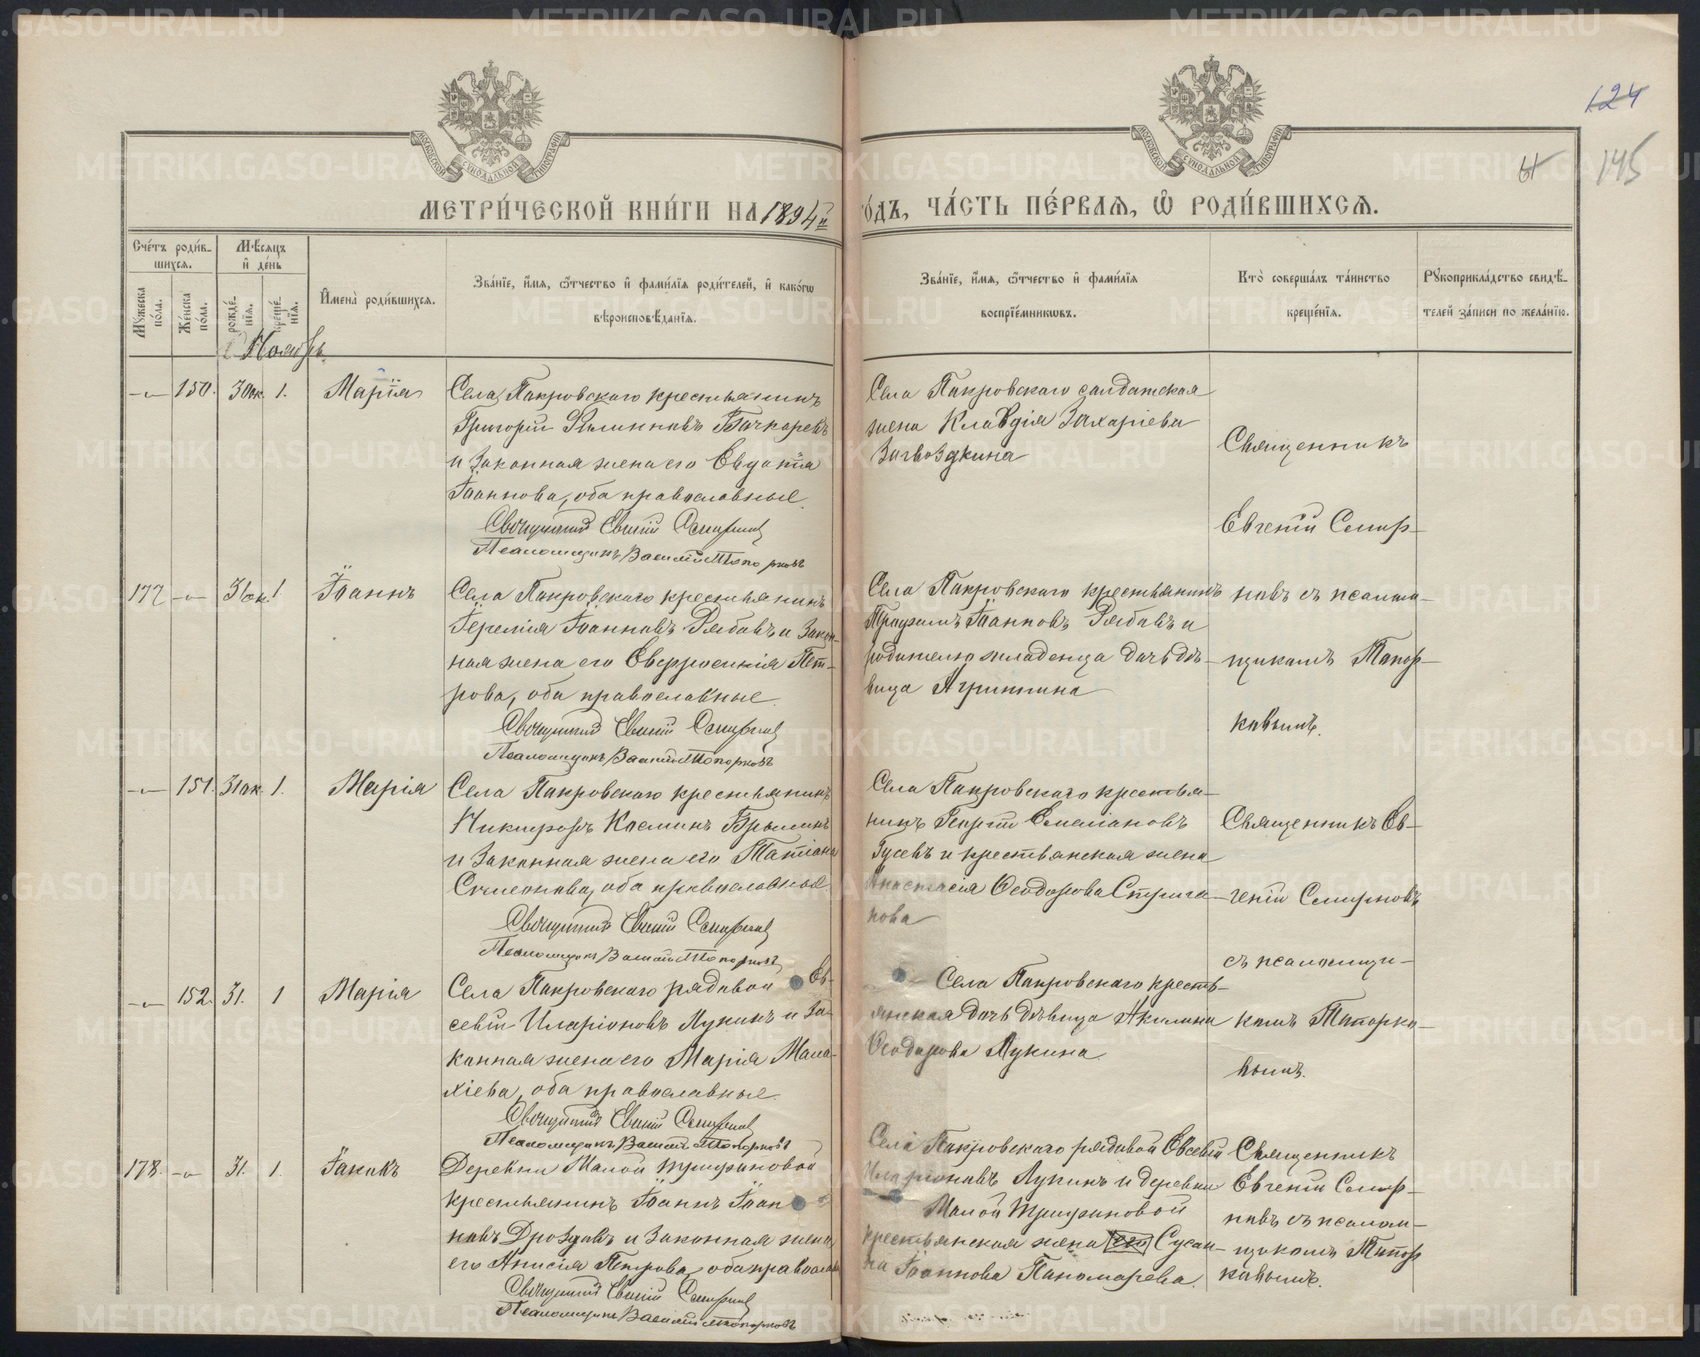 124
145
МЕТРИ́ЧЕСКОЙ КНИ́ГИ НА 1894й
го́дъ, ча́сть пе́рвая, ѡ҆ роди́вшихся.
Сче́тъ роди́в-
шихся.
Мѣ́сяцъ
и҆ де́нь
Мꙋ́жеска
по́ла.
Же́нска
по́ла.
рожде́-
нія.
креще́-
нія.
И҆мена̀ роди́вшихся.
Зва́нїе, и҆́мя, ѻ҆́тчество и҆ фами́лїя роди́телей, и҆ како́гѡ
вѣроисповѣ́данїя.
Зва́нїе, и҆́мя, ѻ҆́тчество и҆ фами́лїя
воспрїе́мникѡвъ.
Кто̀ соверша́лъ та́инство
креще́нїя.
Рꙋкоприкла́дство свидѣ́-
телей за́писи по жела́нїю.
Ноябрь.
150. 30 ок. 1. Марія
Села Покровскаго крестьянинъ
Григорій Филипповъ Бочкаревъ
и законная жена его Евдокія
Іоаннова, оба православные.
Священникъ Евгеній Смирновъ
Псаломщикъ Василій Топорковъ
Села Покровскаго солдатская
жена Клавдія Захаріева
Загвоздкина
Священникъ
Евгеній Смир-
177 31 ок. 1 Іоаннъ
Села Покровскаго крестьянинъ
Іеремія Іоанновъ Рябовъ и закон-
ная жена его Евфросинія Пет-
рова, оба православные.
Священникъ Евгеній Смирновъ
Псаломщикъ Василій Топорковъ
Села Покровскаго крестьянинъ
Трофимъ Іоанновъ Рябовъ и
родителю младенца дочь дѣ-
вица Агриппина
новъ съ псалом-
щикомъ Топор-
ковымъ.
151. 31 ок. 1. Марія
Села Покровскаго крестьянинъ
Никифоръ Косминъ Брылинъ
и законная жена его Татіана
Симеонова, оба православные
Священникъ Евгеній Смирновъ
Псаломщикъ Василій Топорковъ
Села Покровскаго крестья-
нинъ Георгій Емеліановъ
Гусевъ и крестьянская жена
Анастасія Ѳеодорова Стрига-
нова
Священникъ Ев-
геній Смирновъ
съ псаломщи-
152. 31. 1 Марія
Села Покровскаго рядовой Ев-
севій Иларіоновъ Лукинъ и за-
конная жена его Марія Мала-
хіева, оба православные.
Священникъ Евгеній Смирновъ
Псаломщикъ Василій Топорковъ
Села Покровскаго кресть-
янская дочь дѣвица Акилина
Ѳеодорова Лукина
комъ Топорко-
вымъ.
178. 31. 1. Іаковъ
Деревни Малой Трифоновой
крестьянинъ Іоаннъ Іоан-
новъ Дроздовъ и законная жена
его Анисія Петрова, оба православн
Священникъ Евгеній Смирновъ
Псаломщикъ Василій Топорковъ
Села Покровскаго рядовой Евсевій
Иларіоновъ Лукинъ и деревни
Малой Трифоновой
крестьянская жена его Сусан-
на Іоаннова Пономарева.
Священникъ
Евгеній Смир-
новъ съ псалом-
щикомъ Топор
ковымъ.
METRIKI.GASO-URAL.RU